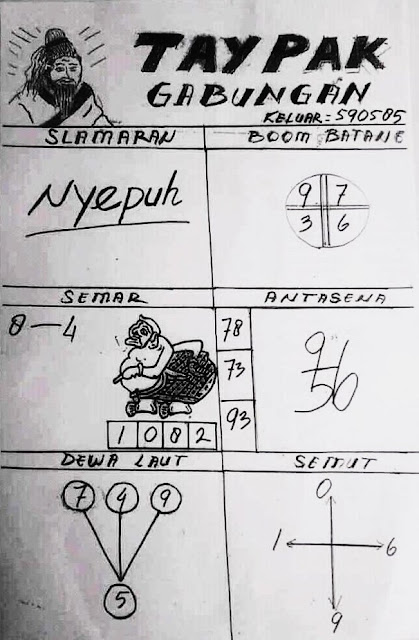 TAYPAK
GABUNGAN
KELUAR = 590585
SLAMARAN
BOOM BATANG
Nyepuh
9 7
3 6
SEMAR
ANTASENA
0 — 4
78
73
93
1 0 8 2
9
56
DEWA LAUT
SEMUT
7 4 9
5
0
1 6
9